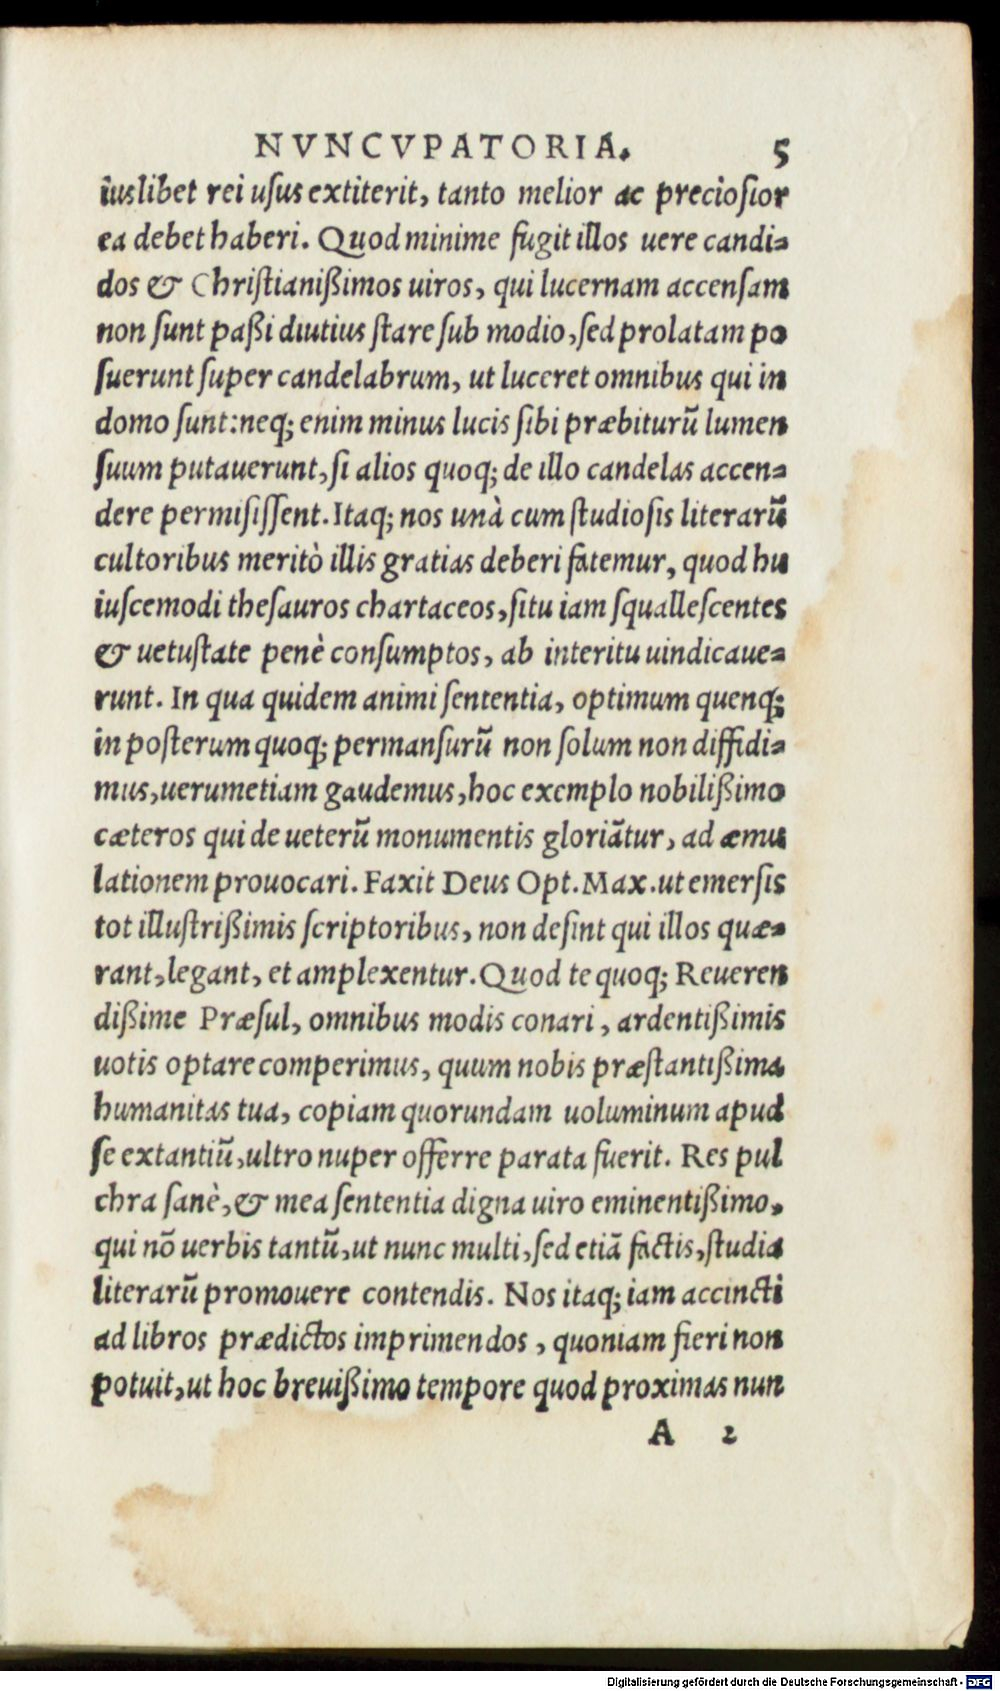 NVNCVPATORIA. 5
iuslibet rei uſus extiterit, tanto melior ac precioſior
ea debet haberi. Quod minime fugit illos uere candi-
dos & Chriſtianißimos uiros, qui lucernam accenſam
non ſunt paßi diutius ſtare ſub modio, ſed prolatam po
ſuerunt ſuper candelabrum, ut luceret omnibus qui in
domo ſunt: neq; enim minus lucis ſibi præbiturũ lumen
ſuum putauerunt, ſi alios quoq; de illo candelas accen-
dere permiſiſſent. Itaq; nos unà cum ſtudioſis literarũ
cultoribus meritò illis gratias deberi fatemur, quod hu
iuſcemodi theſauros chartaceos, ſitu iam ſqualleſcentes
& uetuſtate penè conſumptos, ab interitu uindicaue-
runt. In qua quidem animi ſententia, optimum quenq;
in poſterum quoq; permanſurũ non ſolum non diffidi-
mus, uerumetiam gaudemus, hoc exemplo nobilißimo
cæteros qui de ueterũ monumentis gloriãtur, ad æmu
lationem prouocari. Faxit Deus Opt. Max. ut emerſis
tot illuſtrißimis ſcriptoribus, non deſint qui illos quæ-
rant, legant, et amplexentur. Quod te quoq; Reueren
dißime Præſul, omnibus modis conari, ardentißimis
uotis optare comperimus, quum nobis præſtantißima
humanitas tua, copiam quorundam uoluminum apud
ſe extantiũ, ultro nuper offerre parata fuerit. Res pul
chra ſanè, & mea ſententia digna uiro eminentißimo,
qui nõ uerbis tantũ, ut nunc multi, ſed etiã factis, ſtudia
literarũ promouere contendis. Nos itaq; iam accincti
ad libros prædictos imprimendos, quoniam fieri non
potuit, ut hoc breuißimo tempore quod proximas nun
A 2
Digitalisierung gefördert durch die Deutsche Forschungsgemeinschaft - DFG